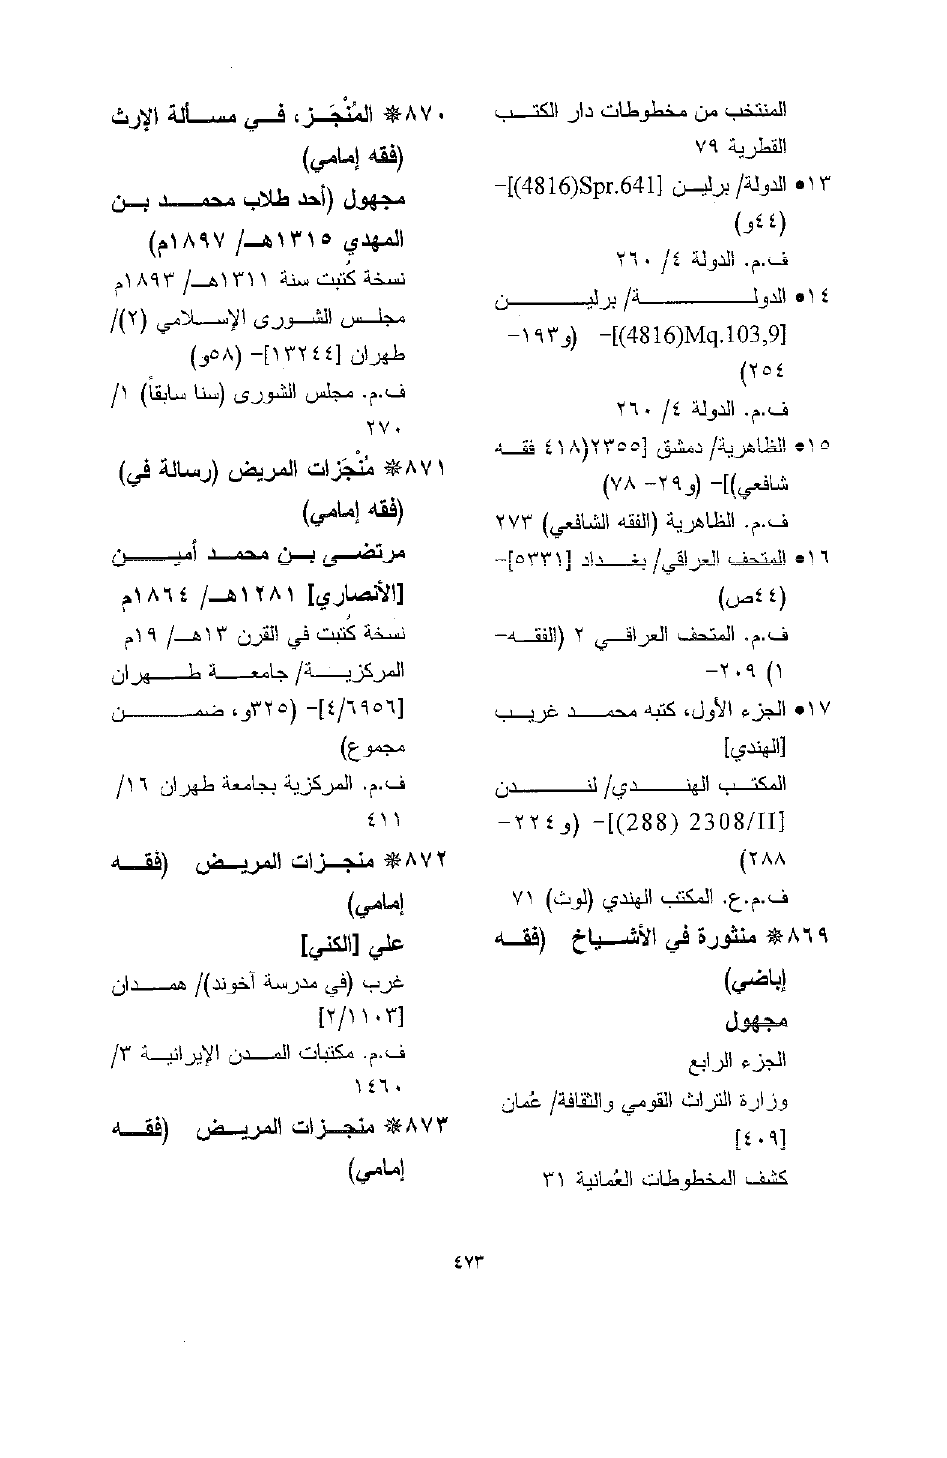 المنتخب من مخطوطات دار الكتب
القطرية ٧٩
١٣• الدولة/ برلين [4816)Spr.641)]-
(٤٤و)
ف.م. الدولة ٤/ ٢٦٠
١٤• الدولة/ برلين
[4816)Mq.103,9)]- (و١٩٣-
٢٥٤)
ف.م. الدولة ٤/ ٢٦٠
١٥• الظاهرية/ دمشق [٢٣٥٥(٤١٨ فقه
شافعي)]- (و٢٩- ٧٨)
ف.م. الظاهرية (الفقه الشافعي) ٢٧٣
١٦• المتحف العراقي/ بغداد [٥٣٣١]-
(٤٤ص)
ف.م. المتحف العراقي ٢ (الفقه-
١) ٢٠٩-
١٧• الجزء الأول، كتبه محمد غريب
[الهندي]
المكتب الهندي/ لندن
[2308/II (288)]- (و٢٢٤-
٢٨٨)
ف.م.ع. المكتب الهندي (لوث) ٧١
٨٦٩* منثورة في الأشياخ (فقه
إباضي)
مجهول
الجزء الرابع
وزارة التراث القومي والثقافة/ عُمان
[٤٠٩]
كشف المخطوطات العُمانية ٣١
٨٧٠* المُنْجَز، في مسألة الإرث
(فقه إمامي)
مجهول (أحد طلاب محمد بن
المهدي ١٣١٥هـ/ ١٨٩٧م)
نسخة كُتبت سنة ١٣١١هـ/ ١٨٩٣م
مجلس الشورى الإسلامي (٢)/
طهران [١٣٢٤٤]- (٥٨و)
ف.م. مجلس الشورى (سنا سابقاً) ١/
٢٧٠
٨٧١* مُنْجَزات المريض (رسالة في)
(فقه إمامي)
مرتضى بن محمد أمين
[الأنصاري] ١٢٨١هـ/ ١٨٦٤م
نسخة كُتبت في القرن ١٣هـ/ ١٩م
المركزية/ جامعة طهران
[٤/٦٩٥٦]- (٣٢٥و، ضمن
مجموع)
ف.م. المركزية بجامعة طهران ١٦/
٤١١
٨٧٢* منجزات المريض (فقه
إمامي)
علي [الكني]
غرب (في مدرسة آخوند)/ همدان
[٢/١١٠٣]
ف.م. مكتبات المدن الإيرانية ٣/
١٤٦٠
٨٧٣* منجزات المريض (فقه
إمامي)
٤٧٣